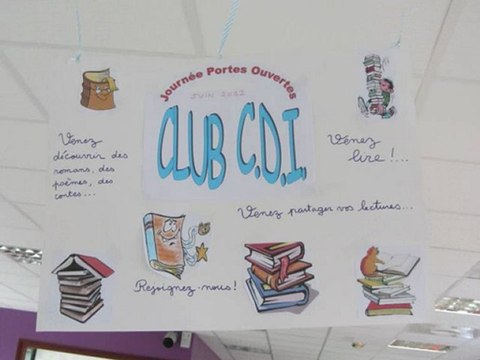 Journée Portes Ouvertes
JUIN 2022
CLUB C.D.I.
Venez
découvrir des
romans, des
poèmes, des
contes...
Venez
lire !...
Venez partager vos lectures...
Rejoignez-nous!